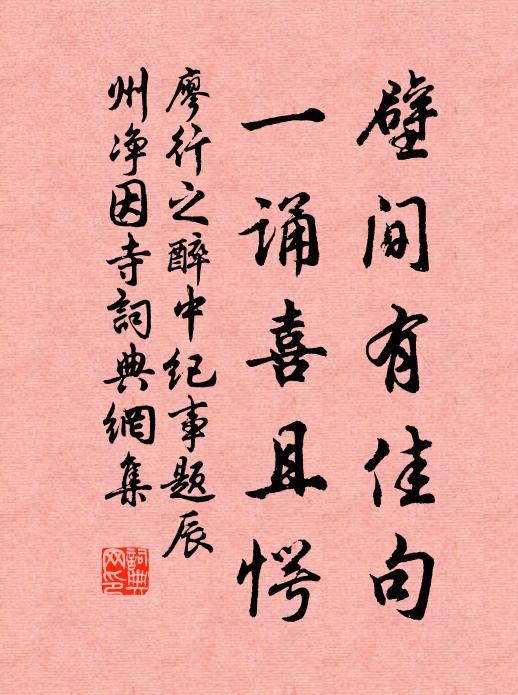 壁间有佳句
一诵喜且愕
廖行之醉中纪事题辰
州净因寺詞典網集
詞典网印